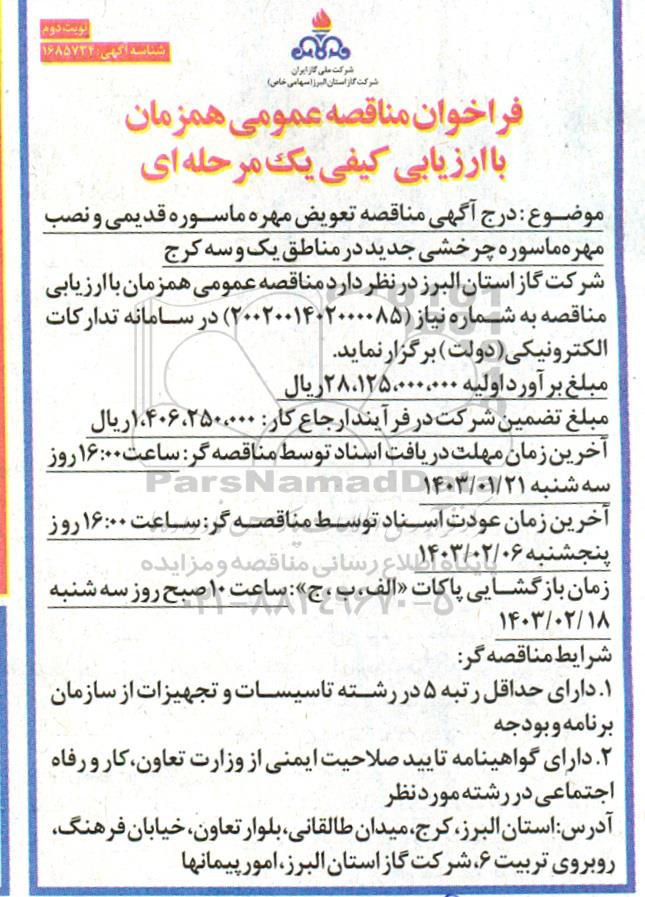 نوبت دوم
شناسه آگهی: ۱۶۸۵۷۳۴
شرکت ملی گاز ایران
شرکت گاز استان البرز (سهامی خاص)
فراخوان مناقصه عمومی همزمان
با ارزیابی کیفی یک مرحله ای
موضوع: درج آگهی مناقصه تعویض مهره ماسوره قدیمی و نصب
مهره ماسوره چرخشی جدید در مناطق یک و سه کرج
شرکت گاز استان البرز در نظر دارد مناقصه عمومی همزمان با ارزیابی
مناقصه به شماره نیاز (۲۰۰۲۰۰۱۴۰۲۰۰۰۰۸۵) در سامانه تدارکات
الکترونیکی (دولت) برگزار نماید.
مبلغ برآورد اولیه ۲۸،۱۲۵،۰۰۰،۰۰۰ ریال
مبلغ تضمین شرکت در فرآیند ارجاع کار: ۱،۴۰۶،۲۵۰،۰۰۰ ریال
آخرین زمان مهلت دریافت اسناد توسط مناقصه گر: ساعت ۱۶:۰۰ روز
سه شنبه ۱۴۰۳/۰۱/۲۱
آخرین زمان عودت اسناد توسط مناقصه گر: ساعت ۱۶:۰۰ روز
پنجشنبه ۱۴۰۳/۰۲/۰۶
زمان بازگشایی پاکات «الف، ب، ج»: ساعت ۱۰ صبح روز سه شنبه
۱۴۰۳/۰۲/۱۸
شرایط مناقصه گر:
۱. دارای حداقل رتبه ۵ در رشته تاسیسات و تجهیزات از سازمان
برنامه و بودجه
۲. دارای گواهینامه تایید صلاحیت ایمنی از وزارت تعاون، کار و رفاه
اجتماعی در رشته مورد نظر
آدرس: استان البرز، کرج، میدان طالقانی، بلوار تعاون، خیابان فرهنگ،
روبروی تربیت ۶، شرکت گاز استان البرز، امور پیمانها
ParsNamadData
پایگاه اطلاع رسانی مناقصه و مزایده
۰۲۱-۸۸۳۴۹۶۷۰-۵